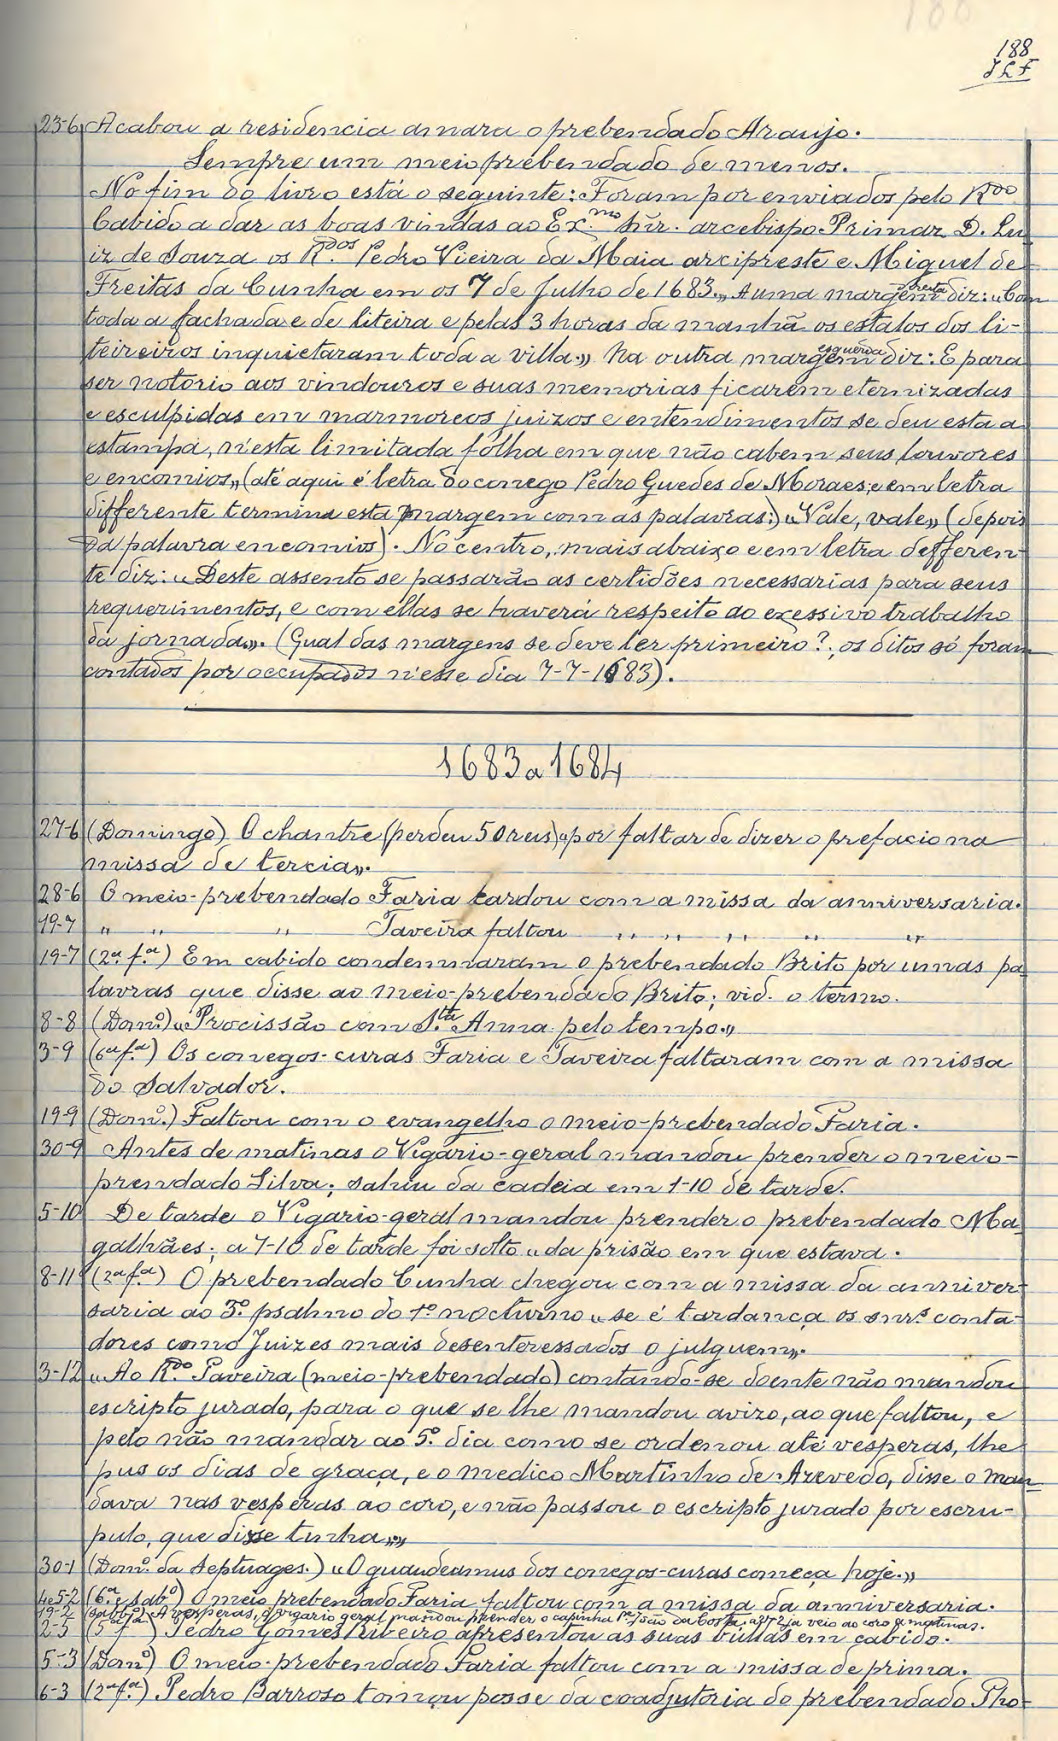 188
J L F
23-6 Acabou a residencia amara o prebendado Araujo.
Sempre um meio prebendado de menos.
No fim do livro está o seguinte: Foram por enviados pelo Rdo
Cabido a dar as boas vindas ao Ex.mo Snr. arcebispo Primaz D. Lu
iz de Souza os R.dos Pedro Vieira da Maia arcipreste e Miguel de
Freitas da Cunha em os 7 de Julho de 1683„ A uma margem direita diz: „Com
toda a fachada e de liteira e pelas 3 horas da manhã os estalos dos li-
teireiros inquietaram toda a villa.» Na outra margem esquerda diz: E para
ser notorio aos vindouros e suas memorias ficarem eternizadas
e esculpidas em marmoreos juizos e entendimentos se deu esta a
estampa, n'esta limitada folha em que não cabem seus louvores
e encomios„ (até aqui é letra do conego Pedro Guedes de Moraes; e em letra
differente termina esta margem com as palavras:) „Vale, vale» (depois
da palavra encomios). No centro, mais abaixo e em letra defferen-
te diz: „Deste assento se passarão as certidões necessarias para seus
requerimentos, e com ellas se haverá respeito ao exessivo trabalho
da jornada». (Qual das margens se deve ler primeiro?; os ditos só foram
contados por occupados n'esse dia 7-7-1683).
1683 a 1684
27-6 (Domingo) O chantre (perdeu 50 reis) „por faltar de dizer o prefacio na
missa de tercia».
28-6 O meio-prebendado Faria tardou com a missa da anniversaria.
19-7 „ „ „ Taveira faltou „ „ „ „ „ „
19-7 (2ª f.ª) Em cabido condemnaram o prebendado Brito por umas pa
lavras que disse ao meio-prebendado Brito; vid. o termo.
8-8 (Domº) „Procissão com S.ta Anna pelo tempo.»
3-9 (6ª f.ª) Os conegos-curas Faria e Taveira faltaram com a missa
do Salvador.
19-9 (Domº.) Faltou com o evangelho o meio-prebendado Faria.
30-9 Antes de matinas o Vigario-geral mandou prender o meio-
prendado Silva; sahiu da cadeia em 1-10 de tarde.
5-10 De tarde o Vigario-geral mandou prender o prebendado Ma-
galhães; a 7-10 de tarde foi solto „da prisão em que estava.
8-11 (2ª f.ª) O prebendado Cunha chegou com a missa da anniver-
saria ao 3º. psalmo do 1º nocturno „se é tardança os snrs. conta-
dores como Juizes mais desenteressados o julguem».
3-12 „Ao R.do Taveira (meio-prebendado) contando-se doente não mandou
escripto jurado, para o que se lhe mandou avizo, ao que faltou, e
pelo não mandar ao 5º. dia como se ordenou até vesperas, lhe
pus os dias de graça, e o medico Martinho de Azevedo, disse o man-
dava nas vesperas ao coro, e não passou o escripto jurado por escru-
pulo, que disse tinha.»
30-1 (Domº. da Septuages.) „O guaudeamus dos conegos-curas começa hoje.»
4e5-2 (6.ª e sabº) O meio prebendado Faria faltou com a missa da anniversaria.
19-2 (sabbº) A vesperas, o vigario geral mandou prender o João da Costa; a 27-2 ja veio ao coro a matinas.
2-3 (5ª f.ª) Pedro Gomes Ribeiro apresentou as suas bullas em cabido.
5-3 (Domº) O meio-prebendado Faria faltou com a missa de prima.
6-3 (2ª f.ª) Pedro Barroso tomou posse da coadjutoria do prebendado Tho-